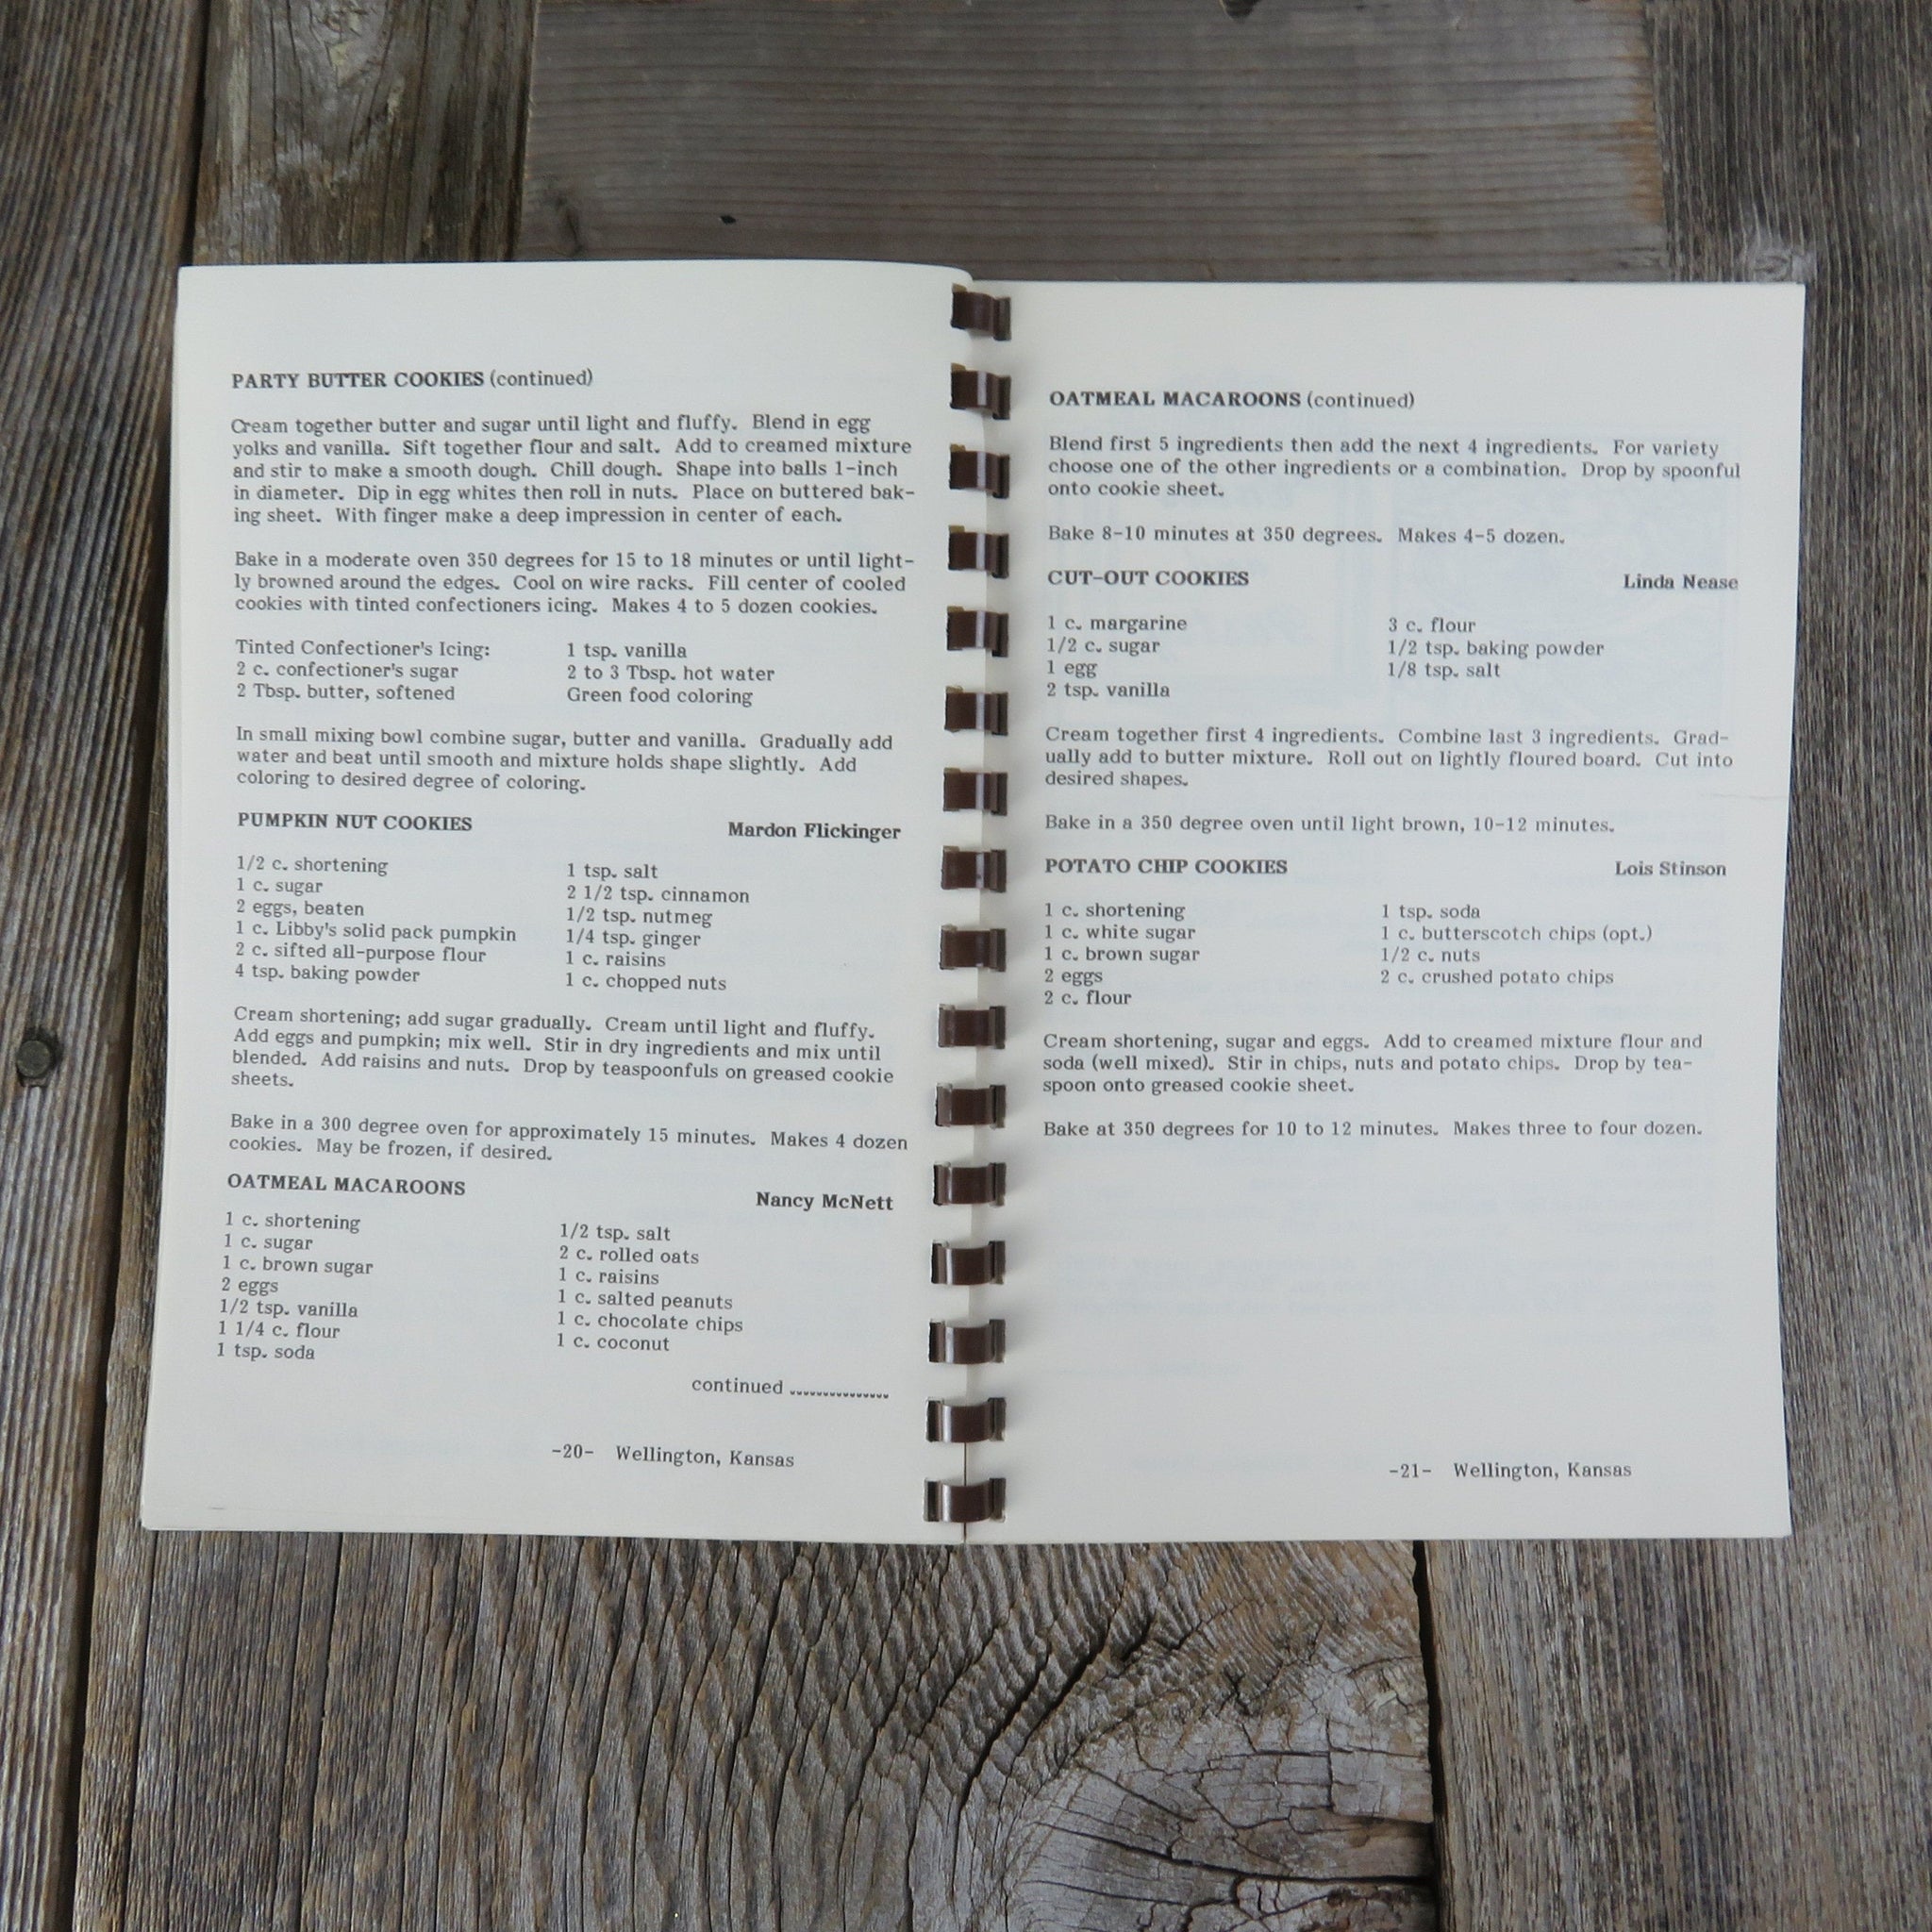 PARTY BUTTER COOKIES (continued)
Cream together butter and sugar until light and fluffy. Blend in egg
yolks and vanilla. Sift together flour and salt. Add to creamed mixture
and stir to make a smooth dough. Chill dough. Shape into balls 1-inch
in diameter. Dip in egg whites then roll in nuts. Place on buttered bak-
ing sheet. With finger make a deep impression in center of each.
Bake in a moderate oven 350 degrees for 15 to 18 minutes or until light-
ly browned around the edges. Cool on wire racks. Fill center of cooled
cookies with tinted confectioners icing. Makes 4 to 5 dozen cookies.
Tinted Confectioner's Icing: 1 tsp. vanilla
2 c. confectioner's sugar 2 to 3 Tbsp. hot water
2 Tbsp. butter, softened Green food coloring
In small mixing bowl combine sugar, butter and vanilla. Gradually add
water and beat until smooth and mixture holds shape slightly. Add
coloring to desired degree of coloring.
PUMPKIN NUT COOKIES Mardon Flickinger
1/2 c. shortening 1 tsp. salt
1 c. sugar 2 1/2 tsp. cinnamon
2 eggs, beaten 1/2 tsp. nutmeg
1 c. Libby's solid pack pumpkin 1/4 tsp. ginger
2 c. sifted all-purpose flour 1 c. raisins
4 tsp. baking powder 1 c. chopped nuts
Cream shortening; add sugar gradually. Cream until light and fluffy.
Add eggs and pumpkin; mix well. Stir in dry ingredients and mix until
blended. Add raisins and nuts. Drop by teaspoonfuls on greased cookie
sheets.
Bake in a 300 degree oven for approximately 15 minutes. Makes 4 dozen
cookies. May be frozen, if desired.
OATMEAL MACAROONS Nancy McNett
1 c. shortening 1/2 tsp. salt
1 c. sugar 2 c. rolled oats
1 c. brown sugar 1 c. raisins
2 eggs 1 c. salted peanuts
1/2 tsp. vanilla 1 c. chocolate chips
1 1/4 c. flour 1 c. coconut
1 tsp. soda
continued ...............
-20- Wellington, Kansas
OATMEAL MACAROONS (continued)
Blend first 5 ingredients then add the next 4 ingredients. For variety
choose one of the other ingredients or a combination. Drop by spoonful
onto cookie sheet.
Bake 8-10 minutes at 350 degrees. Makes 4-5 dozen.
CUT-OUT COOKIES Linda Nease
1 c. margarine 3 c. flour
1/2 c. sugar 1/2 tsp. baking powder
1 egg 1/8 tsp. salt
2 tsp. vanilla
Cream together first 4 ingredients. Combine last 3 ingredients. Grad-
ually add to butter mixture. Roll out on lightly floured board. Cut into
desired shapes.
Bake in a 350 degree oven until light brown, 10-12 minutes.
POTATO CHIP COOKIES Lois Stinson
1 c. shortening 1 tsp. soda
1 c. white sugar 1 c. butterscotch chips (opt.)
1 c. brown sugar 1/2 c. nuts
2 eggs 2 c. crushed potato chips
2 c. flour
Cream shortening, sugar and eggs. Add to creamed mixture flour and
soda (well mixed). Stir in chips, nuts and potato chips. Drop by tea-
spoon onto greased cookie sheet.
Bake at 350 degrees for 10 to 12 minutes. Makes three to four dozen.
-21- Wellington, Kansas